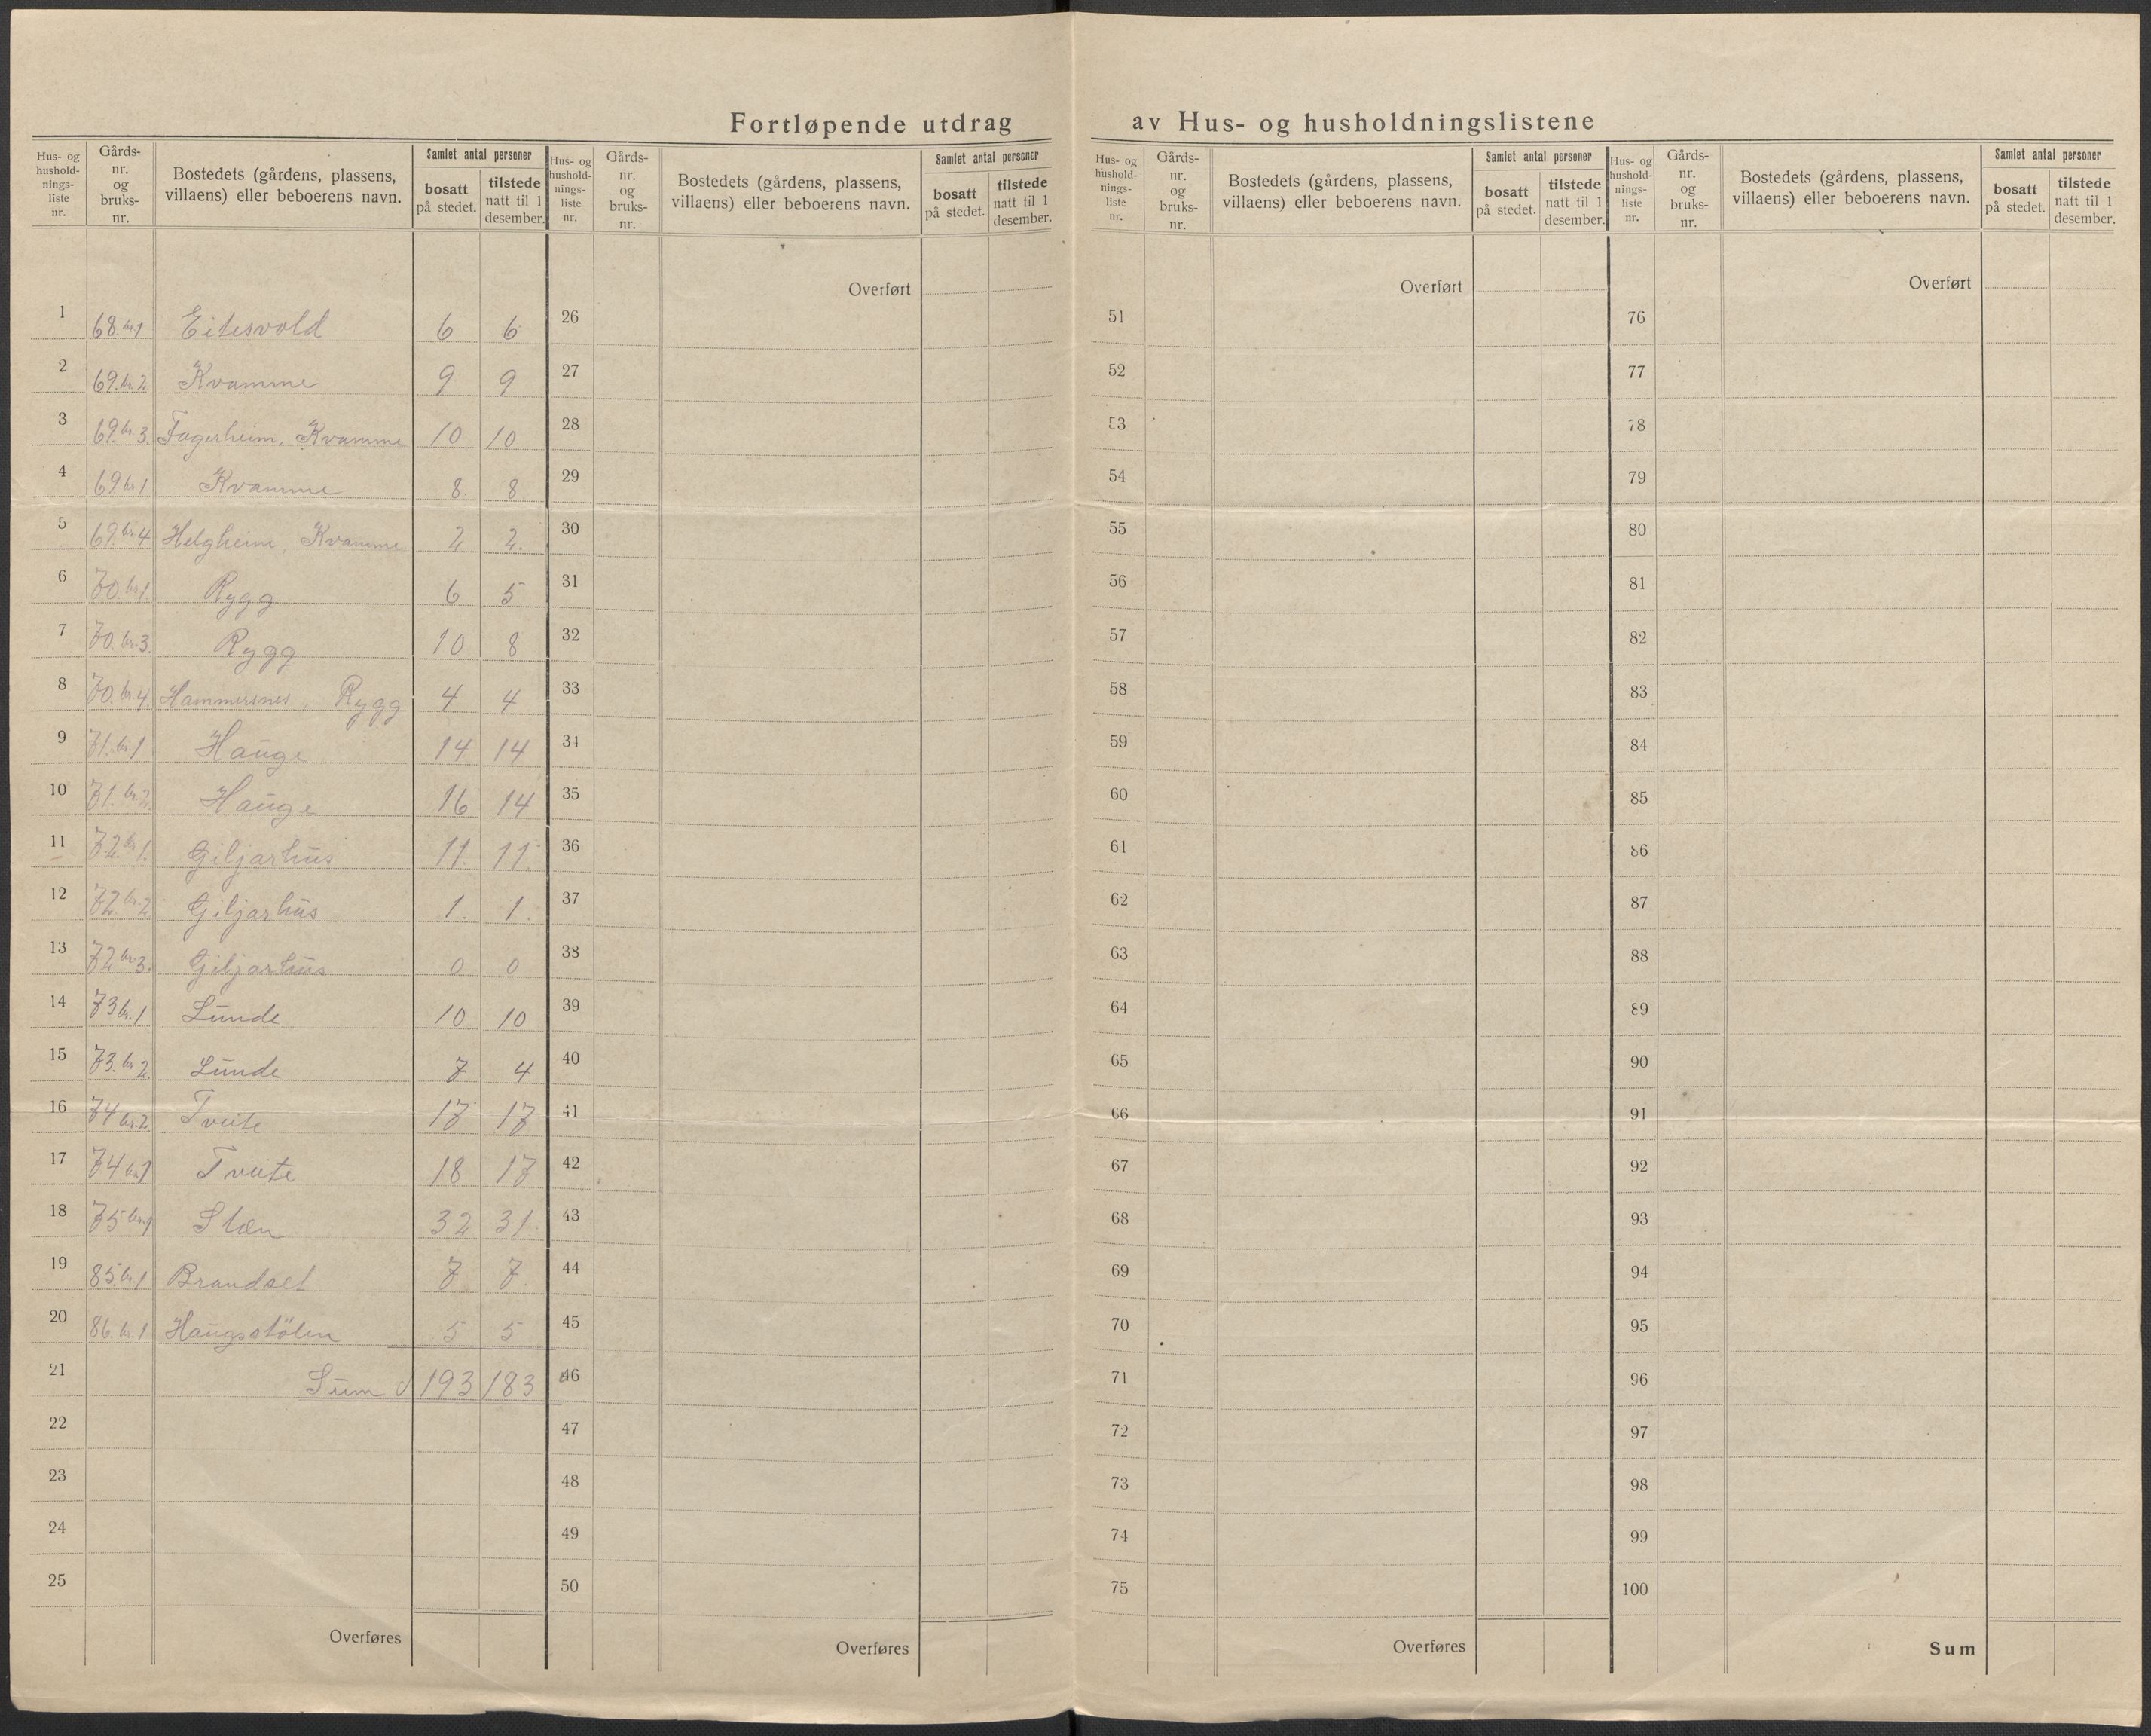 Fortløpende utdrag av Hus- og husholdningslistene
Hus- og hushold- nings- liste nr. Gårds- nr. og bruks- nr. Bostedets (gårdens, plassens, villaens) eller beboerens navn. Samlet antal personer bosatt på stedet. tilstede natt til 1 desember.
1 68. br. 1 Eitesvold 6 6
2 69. br. 2. Kvamme 9 9
3 69. br. 3. Fagerheim, Kvamme 10 10
4 69 br. 1 Kvamme 8 8
5 69. br. 4 Helgheim, Kvamme 2 2.
6 70. br. 1. Rygg 6 5
7 70. br. 3. Rygg 10 8
8 70. br. 4. Hammersnes, Rygg 4 4
9 71. br. 1 Hauge 14 14
10 71. br. 2. Hauge 16 14
11 72. br. 1. Giljarhus 11. 11.
12 72. br. 2 Giljarhus 1. 1.
13 72 br. 3. Giljarhus 0 0
14 73 br. 1 Lunde 10 10
15 73. br. 2. Lunde 7 4
16 74 br. 2. Tveite 17 17
17 74 br. 1 Tveite 18 17
18 75 br. 1 Støen 32 31.
19 85. br. 1 Brandset 7 7
20 86. br. 1 Haugsstölen 5 5
21 Sum 193 183
22
23
24
25
Overføres
Hus- og hushold- nings- liste nr. Gårds- nr. og bruks- nr. Bostedets (gårdens, plassens, villaens) eller beboerens navn. Samlet antal personer bosatt på stedet. tilstede natt til 1 desember.
Overført
26
27
28
29
30
31
32
33
34
35
36
37
38
39
40
41
42
43
44
45
46
47
48
49
50
Overføres
Hus- og hushold- nings- liste nr. Gårds- nr. og bruks- nr. Bostedets (gårdens, plassens, villaens) eller beboerens navn. Samlet antal personer bosatt på stedet. tilstede natt til 1 desember.
Overført
51
52
53
54
55
56
57
58
59
60
61
62
63
64
65
66
67
68
69
70
71
72
73
74
75
Overføres
Hus- og hushold- nings- liste nr. Gårds- nr. og bruks- nr. Bostedets (gårdens, plassens, villaens) eller beboerens navn. Samlet antal personer bosatt på stedet. tilstede natt til 1 desember.
Overført
76
77
78
79
80
81
82
83
84
85
86
87
88
89
90
91
92
93
94
95
96
97
98
99
100
Sum